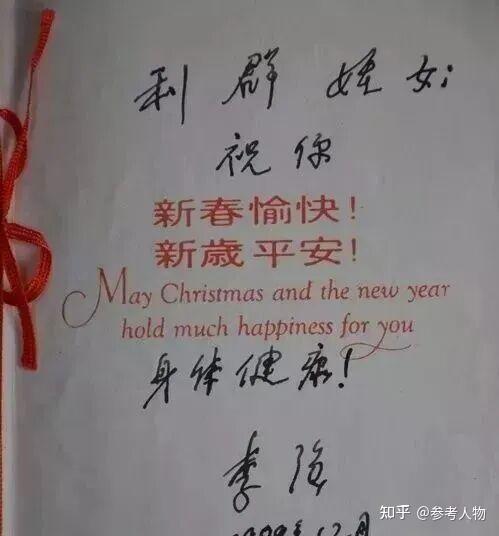 利群姪女:
祝你
新春愉快!
新歳平安!
May Christmas and the new year
hold much happiness for you
身体健康!
李强
知乎 @参考人物